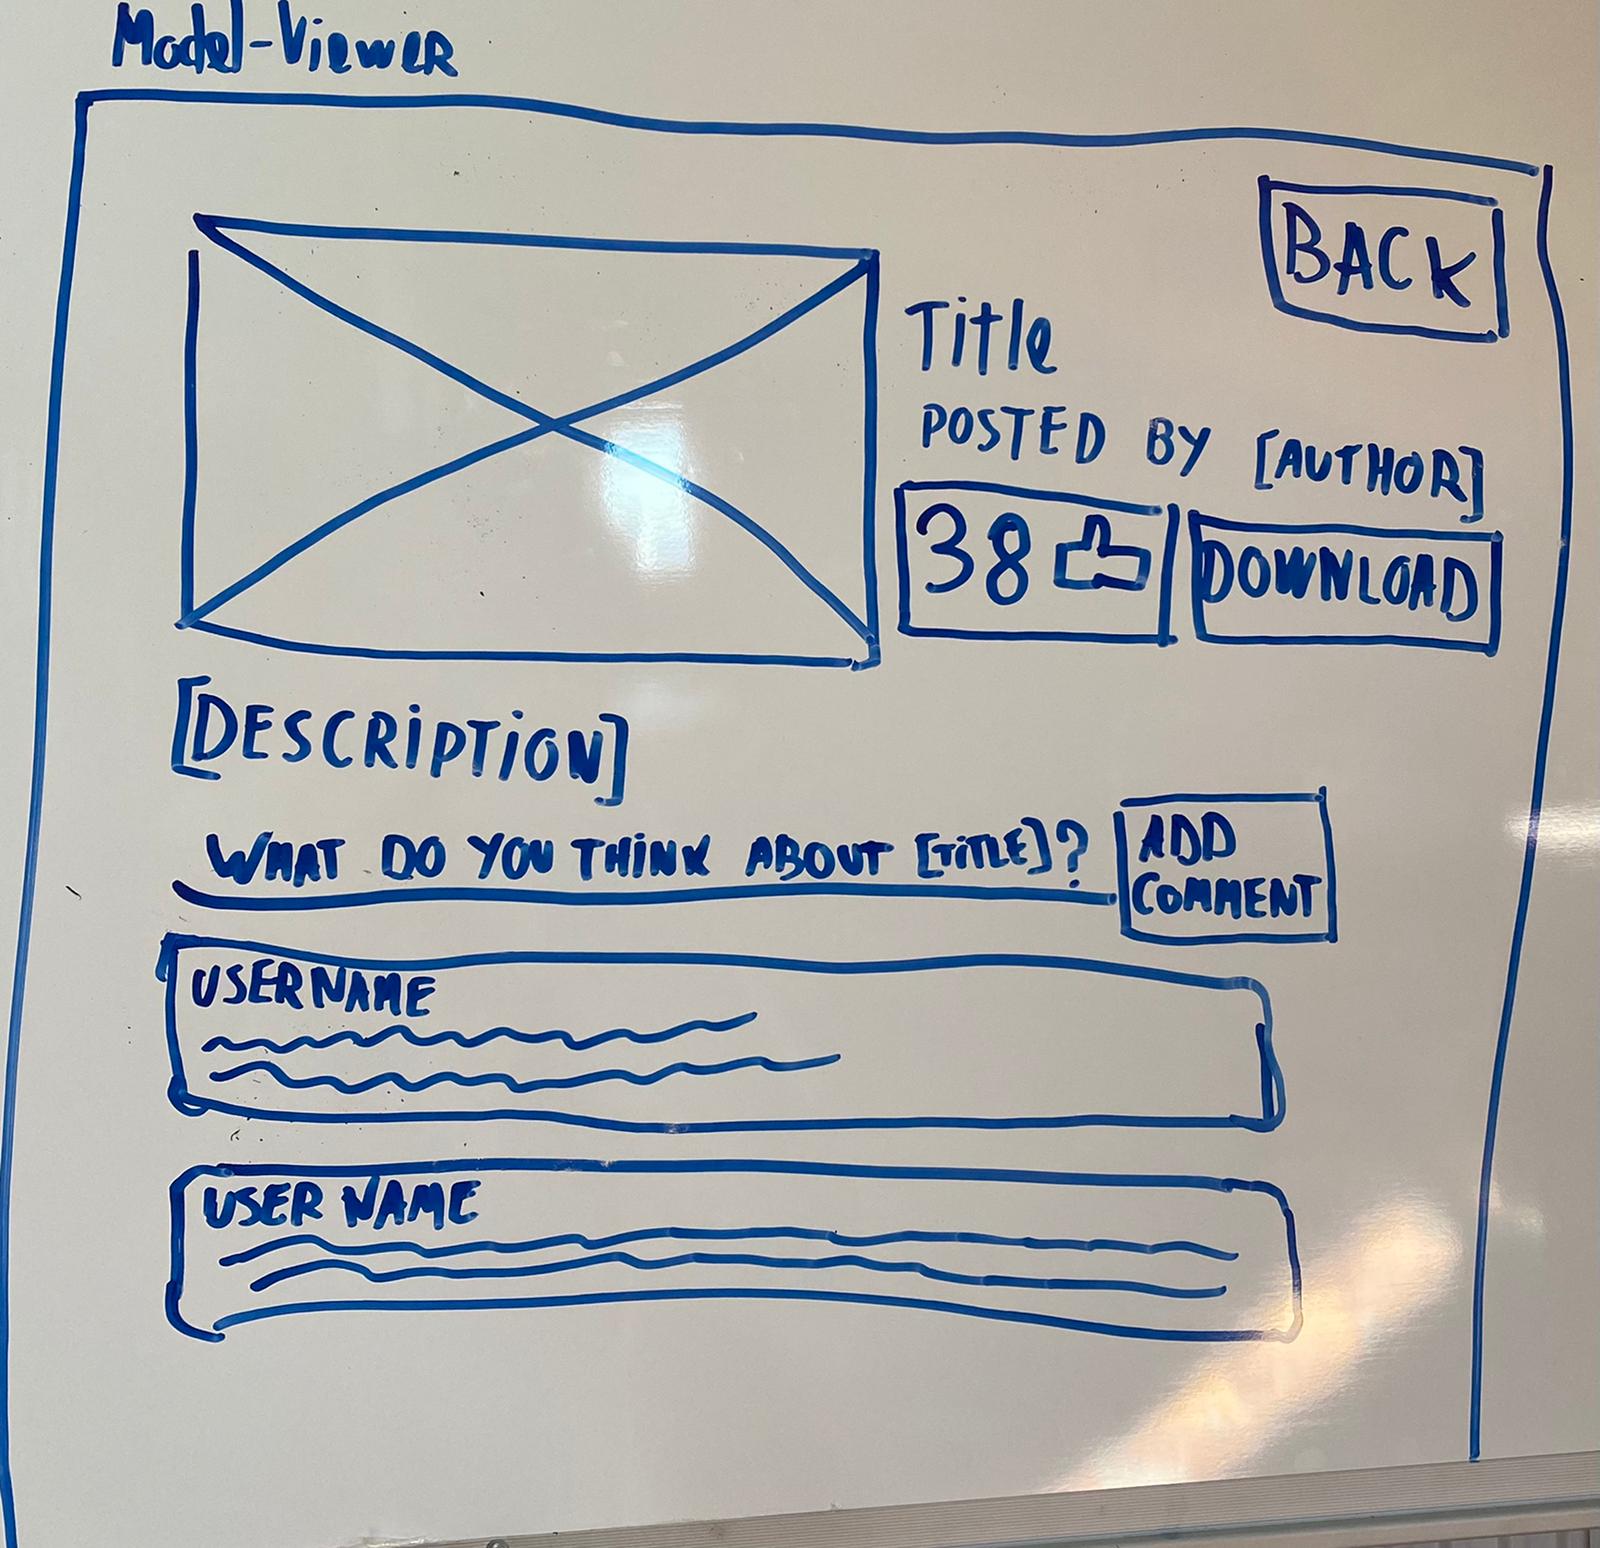 Model-Viewer
BACK
Title
POSTED BY [AUTHOR]
38
DOWNLOAD
[DESCRIPTION]
WHAT DO YOU THINK ABOUT [TITLE]?
ADD
COMMENT
USERNAME
USER NAME